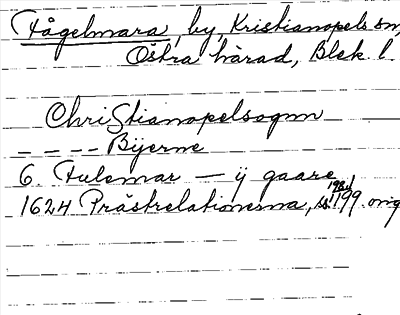 Fågelmara, by, Kristianopels sn,
Östra härad, Blek. l.
Christianopelsognn
- - - - Bÿerne
6. Fulemar — ÿ gaare
1624 Prästrelationerna, s. 199. orig